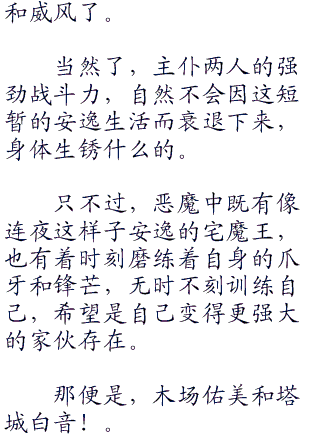 和威风了。
当然了，主仆两人的强
劲战斗力，自然不会因这短
暂的安逸生活而衰退下来，
身体生锈什么的。
只不过，恶魔中既有像
连夜这样子安逸的宅魔王，
也有着时刻磨练着自身的爪
牙和锋芒，无时不刻训练自
己，希望是自己变得更强大
的家伙存在。
那便是，木场佑美和塔
城白音！。